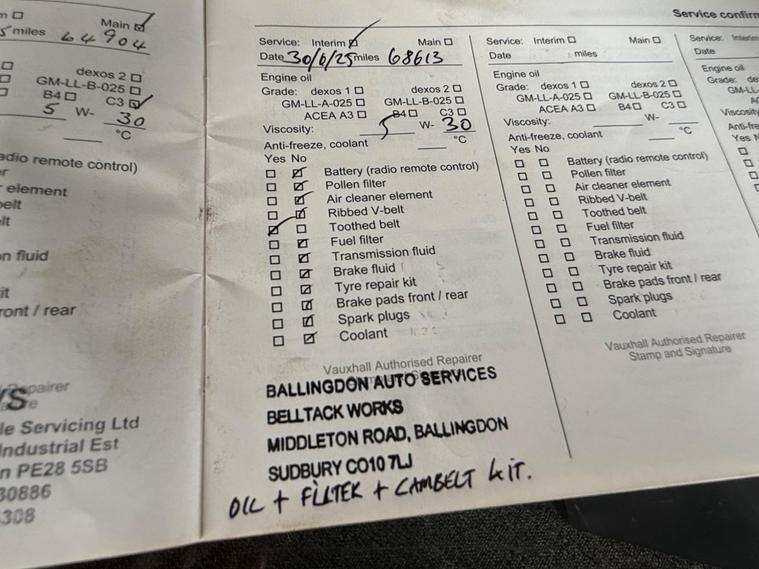 Main ☑
miles 64904
dexos 2 ☐
GM-LL-B-025 ☐
B4 ☐ C3 ☑
5 W- 30
°C
adio remote control)
element
n fluid
ront / rear
epairer
le Servicing Ltd
Industrial Est
n PE28 5SB
30886
308
Service: Interim ☑ Main ☐
Date 30/6/25 miles 68613
Engine oil
Grade: dexos 1 ☐ dexos 2 ☐
GM-LL-A-025 ☐ GM-LL-B-025 ☐
ACEA A3 ☐ B4 ☐ C3 ☐
Viscosity: 5 W- 30
Anti-freeze, coolant °C
Yes No
☐ ☑ Battery (radio remote control)
☐ ☑ Pollen filter
☐ ☑ Air cleaner element
☐ ☑ Ribbed V-belt
☑ ☐ Toothed belt
☐ ☑ Fuel filter
☐ ☑ Transmission fluid
☐ ☑ Brake fluid
☐ ☑ Tyre repair kit
☐ ☑ Brake pads front / rear
☐ ☑ Spark plugs
☐ ☑ Coolant
Vauxhall Authorised Repairer
BALLINGDON AUTO SERVICES
BELLTACK WORKS
MIDDLETON ROAD, BALLINGDON
SUDBURY CO10 7LJ
OIL + FILTER + CAMBELT KIT.
Service confirm
Service: Interim ☐ Main ☐
Date miles
Engine oil
Grade: dexos 1 ☐ dexos 2 ☐
GM-LL-A-025 ☐ GM-LL-B-025 ☐
ACEA A3 ☐ B4 ☐ C3 ☐
Viscosity: W-
Anti-freeze, coolant °C
Yes No
☐ ☐ Battery (radio remote control)
☐ ☐ Pollen filter
☐ ☐ Air cleaner element
☐ ☐ Ribbed V-belt
☐ ☐ Toothed belt
☐ ☐ Fuel filter
☐ ☐ Transmission fluid
☐ ☐ Brake fluid
☐ ☐ Tyre repair kit
☐ ☐ Brake pads front / rear
☐ ☐ Spark plugs
☐ ☐ Coolant
Vauxhall Authorised Repairer
Stamp and Signature
Service: Interim
Date
Engine oil
Grade: de
GM-LL-
ACEA
Viscosity
Anti-fre
Yes N